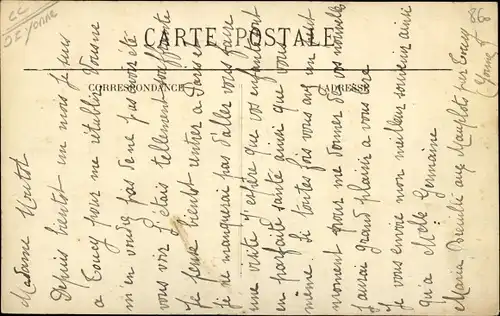 CARTE POSTALE
CORRESPONDANCE
ADRESSE
Madame Moutot
Depuis bientôt un mois je suis
a Toucy pour me rétablir. Vous ne
m'en voudrez pas de ne pas avoir été
vous voir j'étais tellement souffrante
Je pense bientôt rentrer a Paris et
je ne manquerai pas d'aller vous faire
une visite j'espère que vos enfants sont
en parfaite santé ainsi que vous
meme. Si toutes fois vous avez un petit
moment pour me donner de vos nouvelles
j'aurai grand plaisir a vous lire
Je vous envoie mon meilleur souvenir ainsi
qu'a Melle Germaine
Maria aux par Toucy
Yonne
86